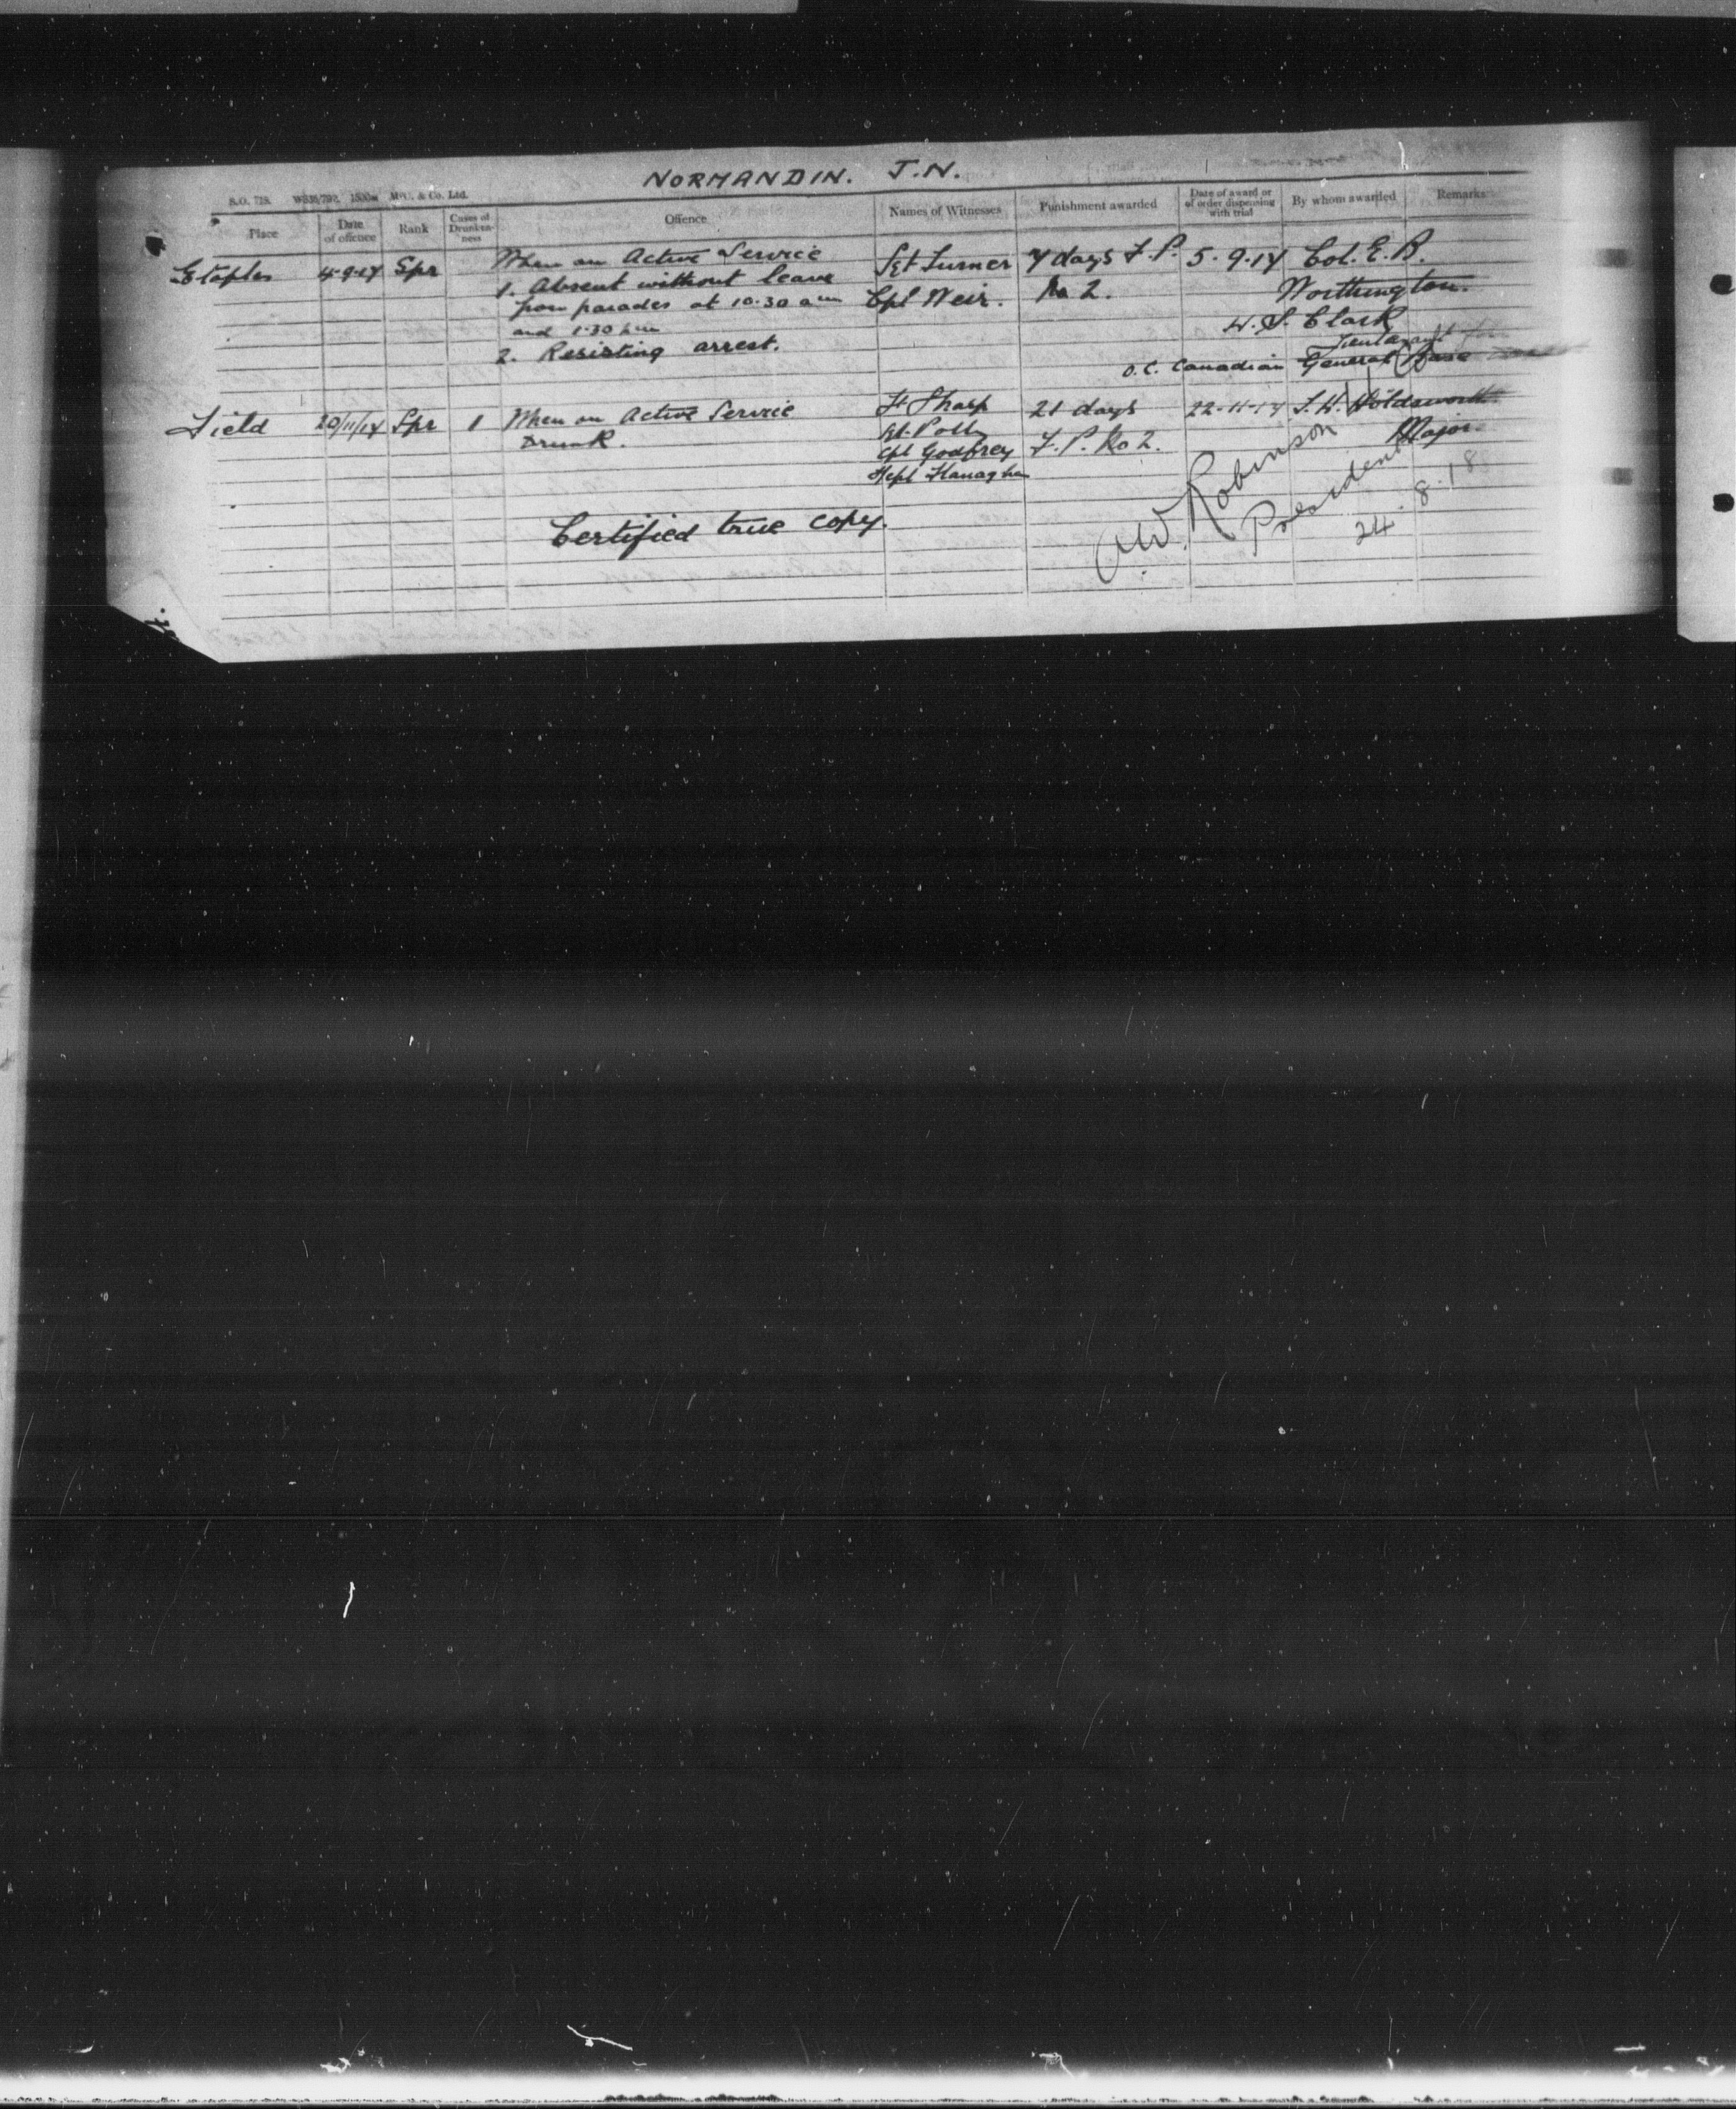 NORMANDIN. J.N.
Place Date of offence Rank Cases of Drunkenness Offence Names of Witnesses Punishment awarded Date of award or of order dispensing with trial By whom awarded Remarks
Etaples 4-9-17 Spr When on Active Service Sgt Turner 7 days F.P. 5-9-17 Col. E.B.
1. Absent without leave Cpl Weir. No 2. Worthington.
from parades at 10.30 am
and 1.30 pm W.S. Clark
2. Resisting arrest. Lieutenant for
O.C. Canadian General Base
Field 20/11/17 Spr 1 When on Active Service Lt Sharp 21 days 22-11-17 J.H. Holdsworth
Drunk. F.P. No 2. Major
Cpl Godfrey
Certified true copy.
A.W. Robinson
President
24.8.18